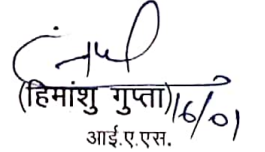 (हिमांशु गुप्ता) 16/01
आई.ए.एस.